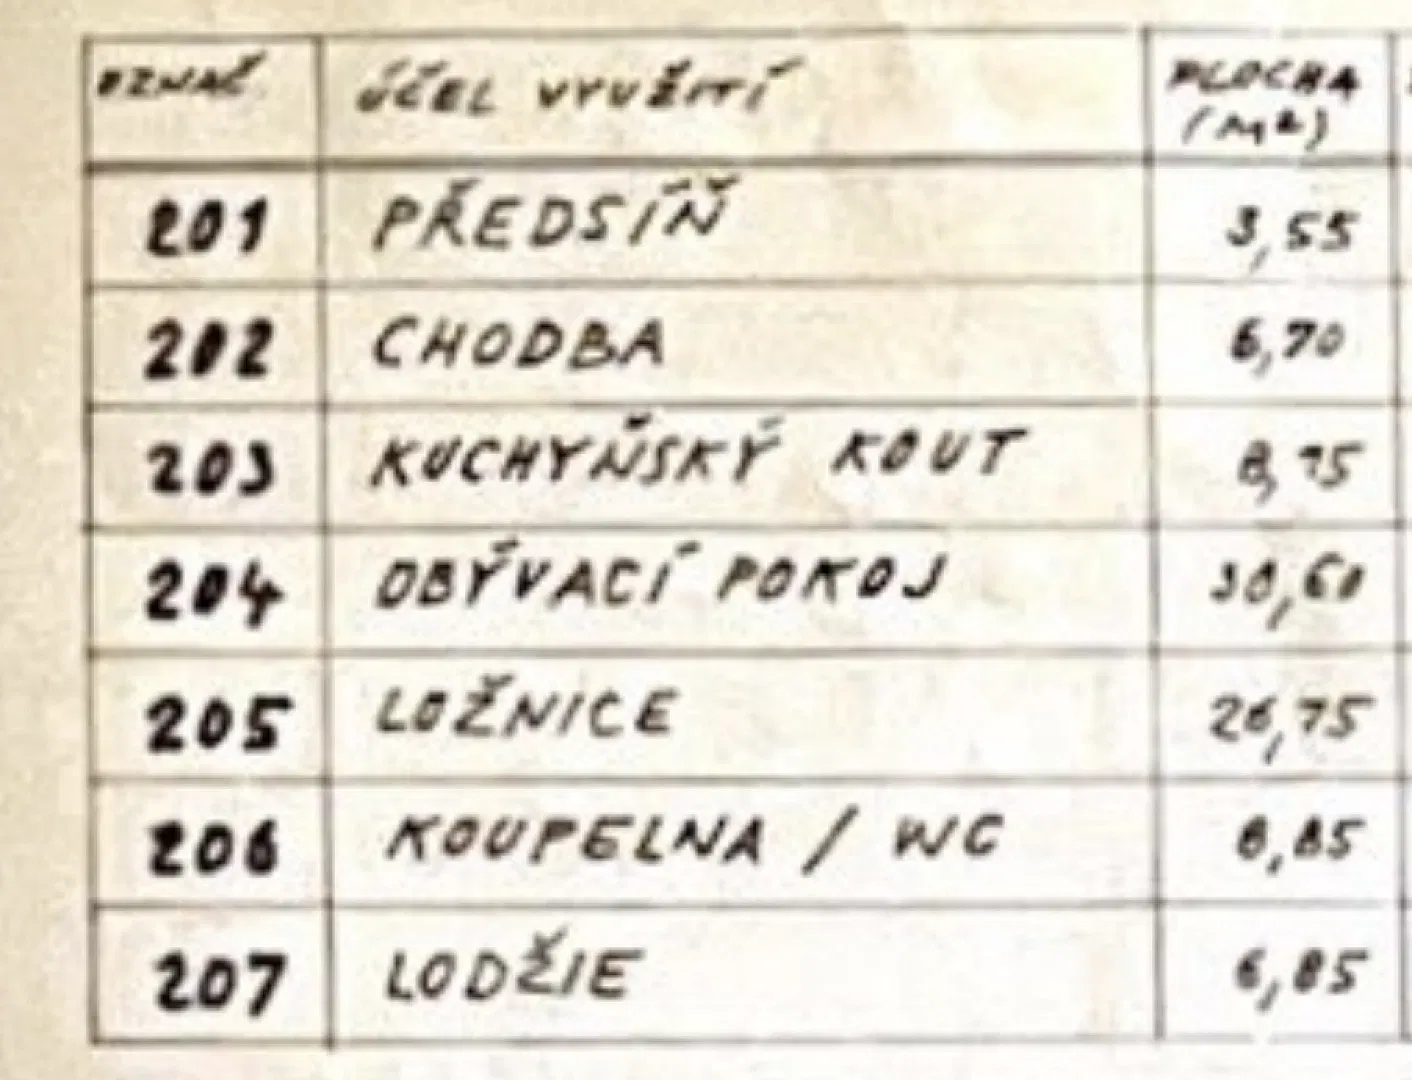 OZNAČ. ÚČEL VYUŽITÍ PLOCHA
(M2)
201 PŘEDSÍŇ 3,55
202 CHODBA 6,70
203 KUCHYŇSKÝ KOUT
204 OBÝVACÍ POKOJ 30,60
205 LOŽNICE 26,75
206 KOUPELNA / WC
207 LODŽIE 6,85